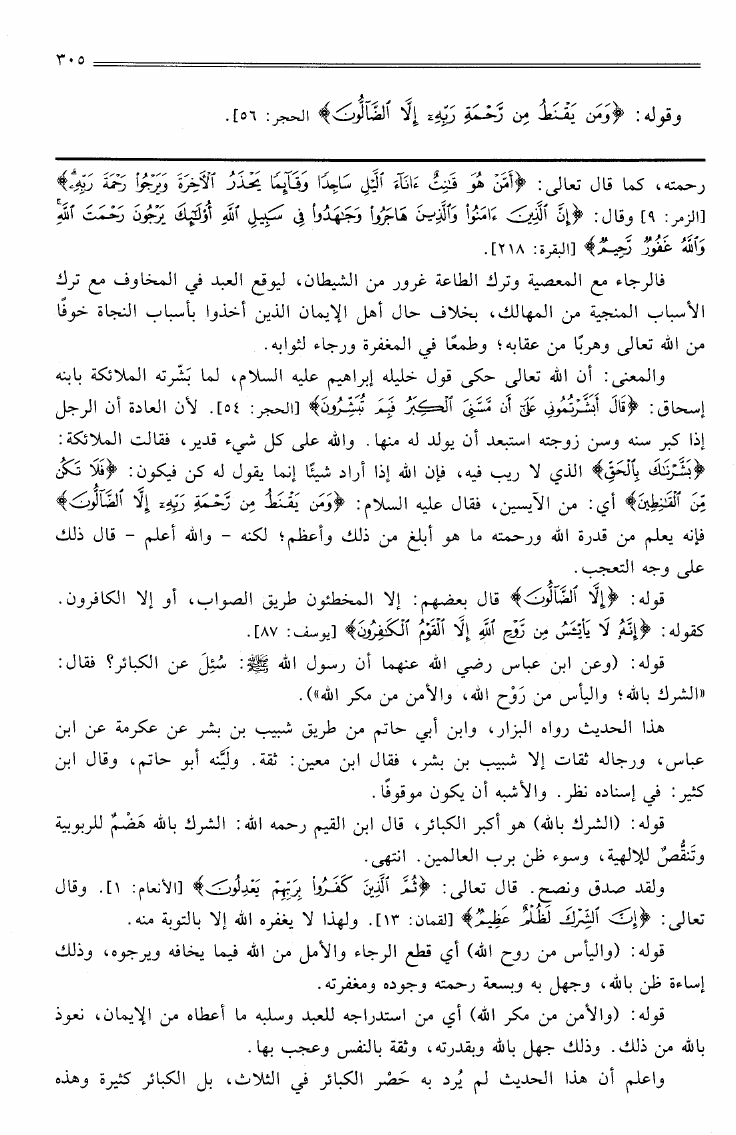 ٣٠٥
وقوله: ﴿وَمَن يَقْنَطُ مِن رَّحْمَةِ رَبِّهِۦٓ إِلَّا ٱلضَّآلُّونَ﴾ الحجر: ٥٦].
رحمته، كما قال تعالى: ﴿أَمَّنْ هُوَ قَـٰنِتٌ ءَانَآءَ ٱلَّيْلِ سَاجِدًا وَقَآئِمًا يَحْذَرُ ٱلْـَٔاخِرَةَ وَيَرْجُوا۟ رَحْمَةَ رَبِّهِۦ﴾
[الزمر: ٩] وقال: ﴿إِنَّ ٱلَّذِينَ ءَامَنُوا۟ وَٱلَّذِينَ هَاجَرُوا۟ وَجَـٰهَدُوا۟ فِى سَبِيلِ ٱللَّهِ أُو۟لَـٰٓئِكَ يَرْجُونَ رَحْمَتَ ٱللَّهِ ۚ
وَٱللَّهُ غَفُورٌ رَّحِيمٌ﴾ [البقرة: ٢١٨].
فالرجاء مع المعصية وترك الطاعة غرور من الشيطان، ليوقع العبد في المخاوف مع ترك
الأسباب المنجية من المهالك، بخلاف حال أهل الإيمان الذين أخذوا بأسباب النجاة خوفًا
من الله تعالى وهربًا من عقابه؛ وطمعًا في المغفرة ورجاء لثوابه.
والمعنى: أن الله تعالى حكى قول خليله إبراهيم عليه السلام، لما بَشَّرته الملائكة بابنه
إسحاق: ﴿قَالَ أَبَشَّرْتُمُونِى عَلَىٰٓ أَن مَّسَّنِىَ ٱلْكِبَرُ فَبِمَ تُبَشِّرُونَ﴾ [الحجر: ٥٤]. لأن العادة أن الرجل
إذا كبر سنه وسن زوجته استبعد أن يولد له منها. والله على كل شيء قدير، فقالت الملائكة:
﴿بَشَّرْنَـٰكَ بِٱلْحَقِّ﴾ الذي لا ريب فيه، فإن الله إذا أراد شيئًا إنما يقول له كن فيكون: ﴿فَلَا تَكُن
مِّنَ ٱلْقَـٰنِطِينَ﴾ أي: من الآيسين، فقال عليه السلام: ﴿وَمَن يَقْنَطُ مِن رَّحْمَةِ رَبِّهِۦٓ إِلَّا ٱلضَّآلُّونَ﴾
فإنه يعلم من قدرة الله ورحمته ما هو أبلغ من ذلك وأعظم؛ لكنه - والله أعلم - قال ذلك
على وجه التعجب.
قوله: ﴿إِلَّا ٱلضَّآلُّونَ﴾ قال بعضهم: إلا المخطئون طريق الصواب، أو إلا الكافرون.
كقوله: ﴿إِنَّهُۥ لَا يَا۟يْـَٔسُ مِن رَّوْحِ ٱللَّهِ إِلَّا ٱلْقَوْمُ ٱلْكَـٰفِرُونَ﴾ [يوسف: ٨٧].
قوله: (وعن ابن عباس رضي الله عنهما أن رسول الله ﷺ: سُئِلَ عن الكبائر؟ فقال:
«الشرك بالله؛ واليأس من رَوْح الله، والأمن من مكر الله»).
هذا الحديث رواه البزار، وابن أبي حاتم من طريق شبيب بن بشر عن عكرمة عن ابن
عباس، ورجاله ثقات إلا شبيب بن بشر، فقال ابن معين: ثقة. وليَّنه أبو حاتم، وقال ابن
كثير: في إسناده نظر. والأشبه أن يكون موقوفًا.
قوله: (الشرك بالله) هو أكبر الكبائر، قال ابن القيم رحمه الله: الشرك بالله هَضْمٌ للربوبية
وتَنقُّصٌ للإلهية، وسوء ظن برب العالمين. انتهى.
ولقد صدق ونصح. قال تعالى: ﴿ثُمَّ ٱلَّذِينَ كَفَرُوا۟ بِرَبِّهِمْ يَعْدِلُونَ﴾ [الأنعام: ١]. وقال
تعالى: ﴿إِنَّ ٱلشِّرْكَ لَظُلْمٌ عَظِيمٌ﴾ [لقمان: ١٣]. ولهذا لا يغفره الله إلا بالتوبة منه.
قوله: (واليأس من روح الله) أي قطع الرجاء والأمل من الله فيما يخافه ويرجوه، وذلك
إساءة ظن بالله، وجهل به وبسعة رحمته وجوده ومغفرته.
قوله: (والأمن من مكر الله) أي من استدراجه للعبد وسلبه ما أعطاه من الإيمان، نعوذ
بالله من ذلك. وذلك جهل بالله وبقدرته، وثقة بالنفس وعجب بها.
واعلم أن هذا الحديث لم يُرد به حَصْر الكبائر في الثلاث، بل الكبائر كثيرة وهذه